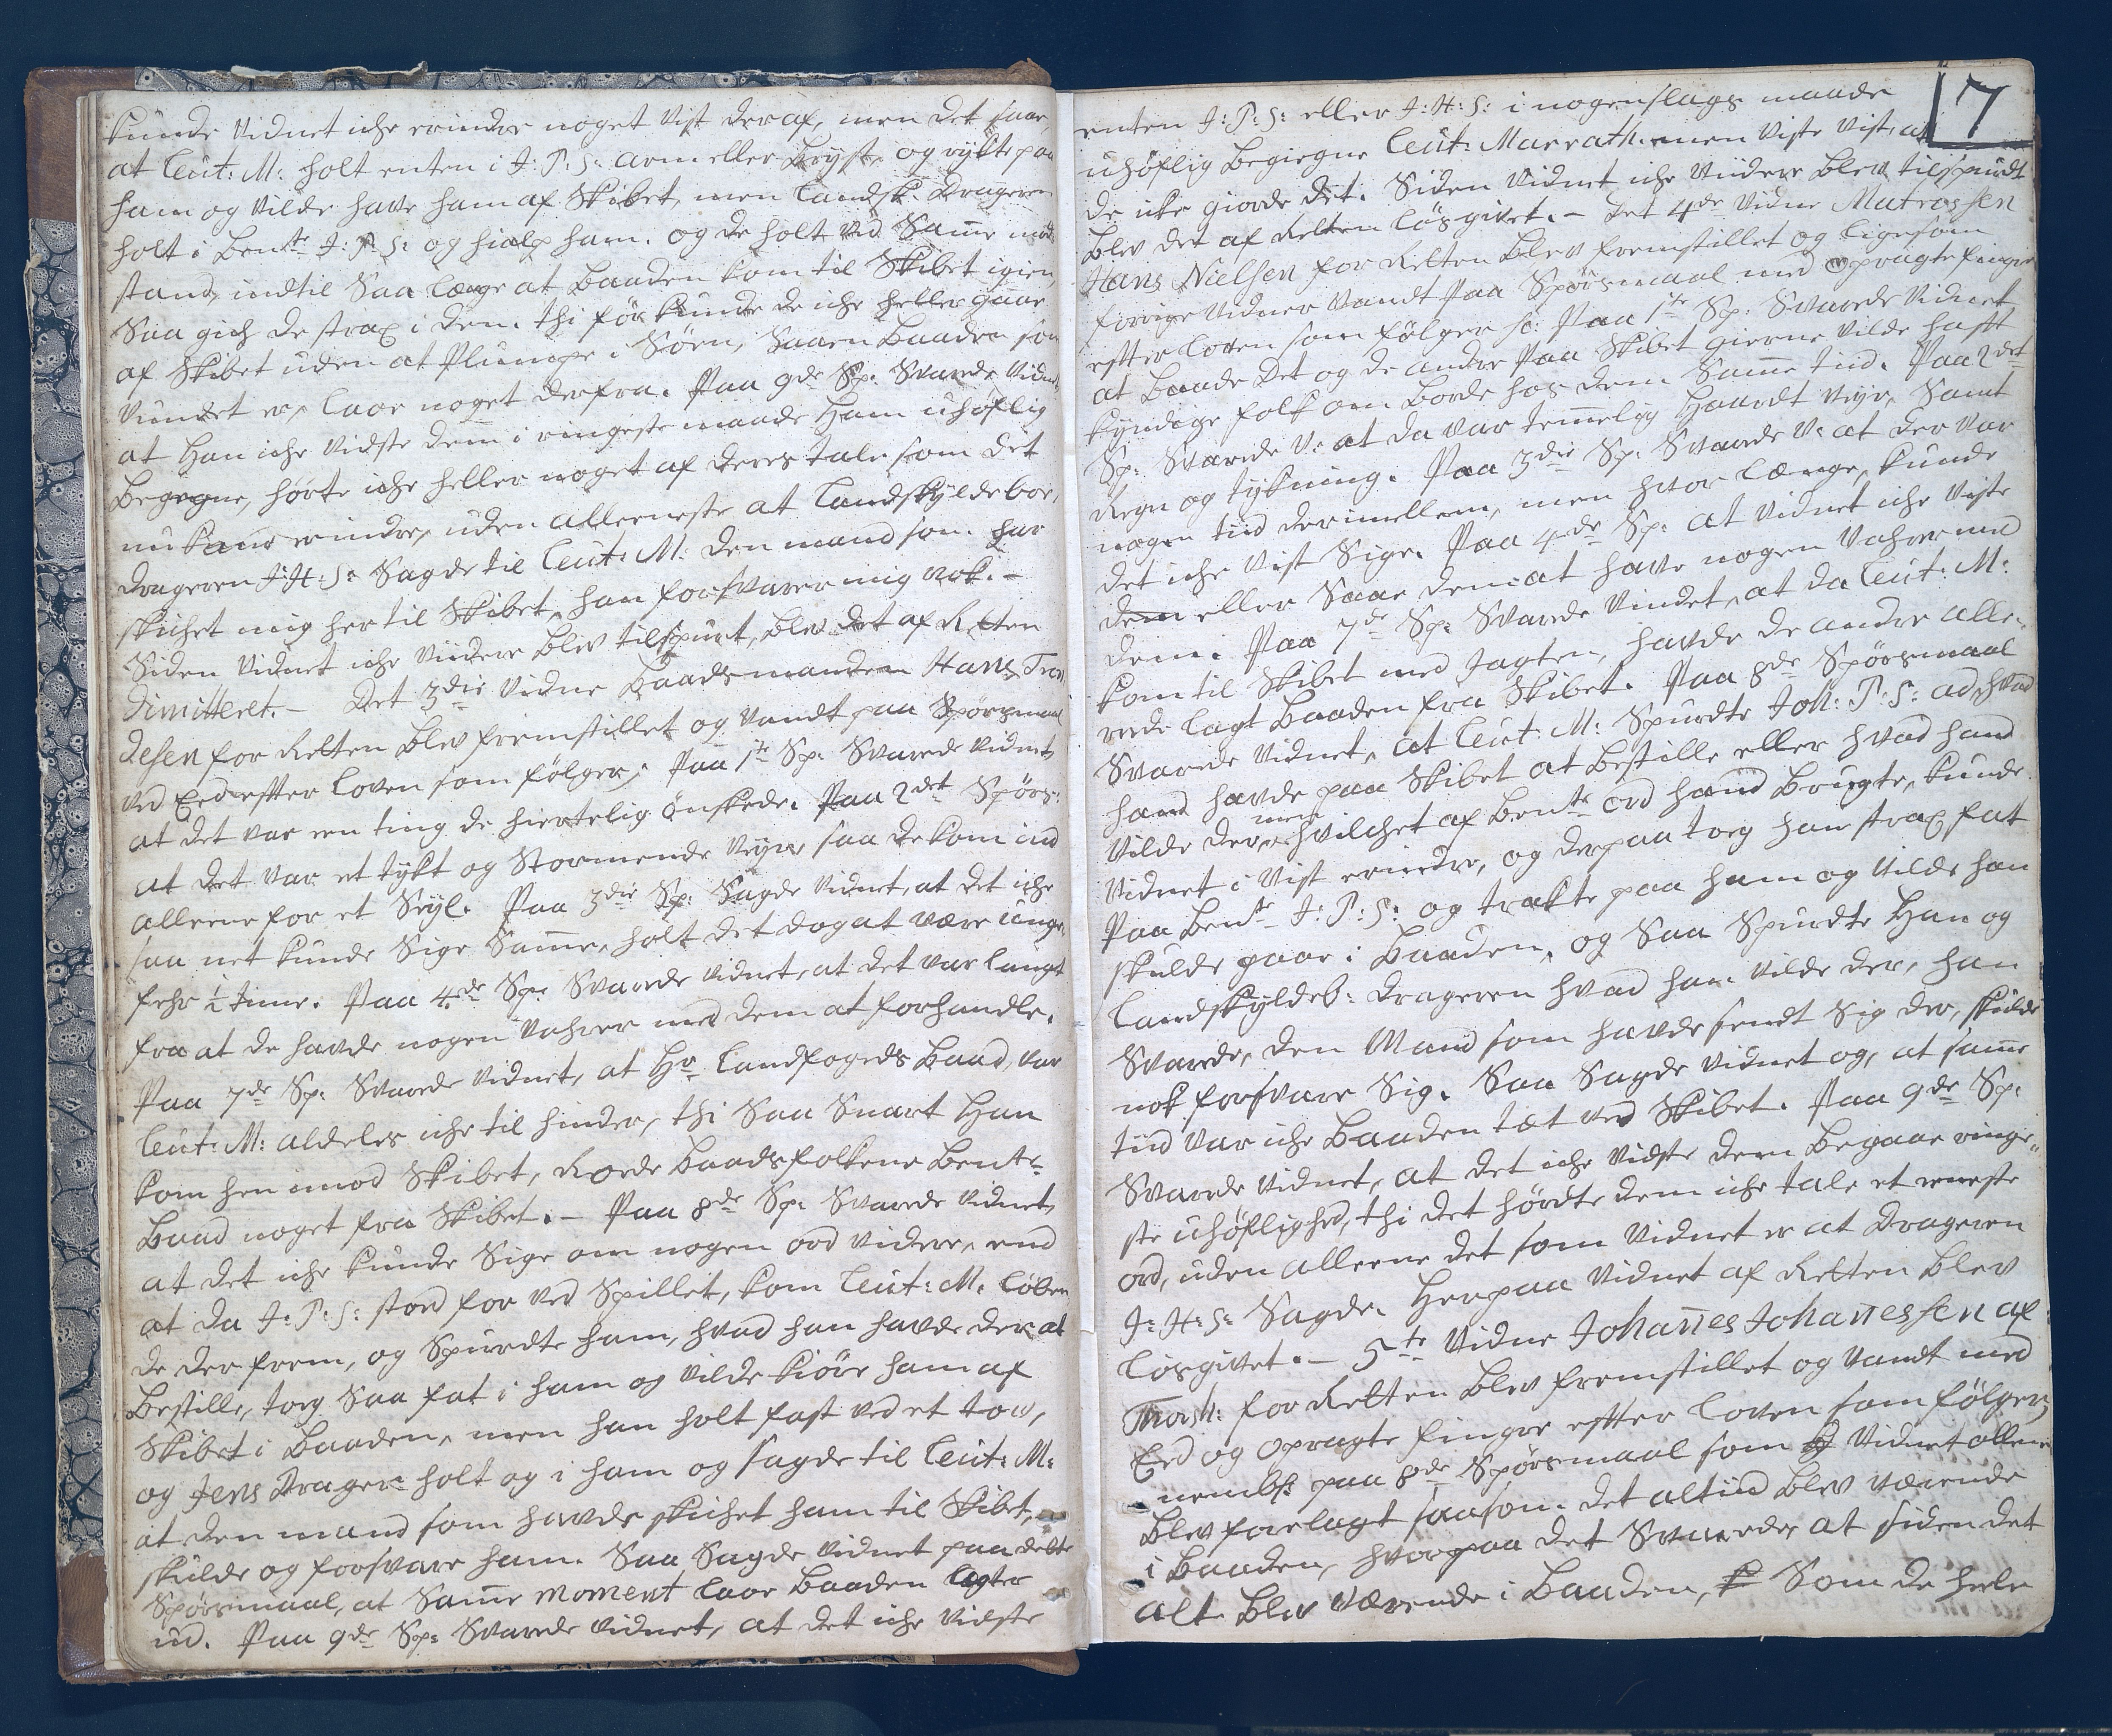 kunde Vidnet iche erindre noget Vist deraf, men det saae,
at Leut: M: holt enten i J: P: S: arm eller Bryst, og rykte paa
ham og Vilde have ham af Skibet, men Landsk. Drageren
holt i Bente J: P: S: og hialp ham. og de holt ved Samme mod-
stand, indtil Saa Længe at Baaden kom til Skibet igien,
Saa gich de strax i den. thi før kunde de iche heller gaae
af Skibet uden at Plumpe i Søen, Saaen Baaden som
Vundet er, laae noget derfra. Paa 9de Sp: Svarede Vidnet
at Han iche Vidste dem i ringeste maade Ham uhøflig
Begegne, hørte iche heller noget af deres tale som det
nu kunde erindre, uden alleeneste at Landskyldebor,
drageren J: H: S: Sagde til Leut: M: den mand som har
skichet mig her til Skibet, han forsvarer mig nok. -
Siden Vidnet iche Viidere blev tilspurt, blev det af Retten
dimitteret. - Det 3die Vidne Baadsmanden Hans Tron
desen for Retten blev fremstillet og Vandt paa Spørsmaal
ved Eed effter Loven som følger; Paa 1te Sp: Svarede Vidnet
at det var een ting de hiertelig ønskede. Paa 2det Spørs:
at det var et tykt og Stormende Veyer saa de kom ind
alleene for et Seyl. Paa 3die Sp: Sagde Vidnet, at det iche
saa net kunde Sige Samme, holt det dog at være unge-
fehr ½ time. Paa 4de Sp: Svarede Vidnet, at det var langt
fra at de havde nogen Vahrer med dem at forhandle.
Paa 7de Sp: Svarede Vidnet, at Hr Landfogeds Baad, var
Leut: M: aldeles iche til hinder, thi Saa Snart Han
kom hen imod Skibet, Roede Baadsfolkene Bente
Baad noget fra Skibet. - Paa 8de Sp: Svarede Vidnet,
at det iche kunde Sige om nogen ord videre, end
at da J: P: S: stod for ved Spillet, kom Leut: M: Løben
de der frem, og Spurdte ham, hvad han havde der at
Bestille, toeg Saa fat i ham og Vilde kiøre ham af
Skibet i Baaden, men han holt fast ved et tow,
og Jens Dragere holt og i ham og sagde til Leut: M:
at den mand som havde skichet ham til Skibet,
skulde og forsvare ham. Saa Sagde Vidnet paa dette
Spørsmaal, at Samme moment laae Baaden agter
ud. Paa 9de Sp: Svarede Vidnet, at det iche Vidste
7
enten J: P: S: eller J: H: S: i nogenslags maade
uhøflig Begiegne Leut: Marrath. men Viste Vist, at
de icke giorde det. Siden Vidnet iche Viidere blev tilspurdt
Blev det af Retten Løsgivet. - Det 4de Vidne Matrossen
Hans Nielsen for Retten blev fremstillet og Ligesom
forrige Vidner Vandt Paa Spørsmaal med opragte finger
effter Loven som følger Paa 1te Sp: Svarede Vidnet
at Baade Det og de andre Paa Skibet gierne Vilde hafft
kyndige folk om Borde hos dem Samme tiid. Paa 2det
Sp: Svarede V: at da var temmelig Haardt Veyr, Samt
Regn og tykning. Paa 3die Sp: Svarede V: at der var
nogen tiid derimellem, men hvor Længe, kunde
det iche Vist Sige. Paa 4de Sp: at Vidnet iche Viste
dem eller Saae dem at have nogen Vahrer med
dem. Paa 7de Sp: Svarede Vindet, at da Leut: M:
kom til Skibet med Jagten, havde de andre alle-
rede lagt Baaden fra Skibet. Paa 8de Spørsmaal
Svarede Vidnet, at Leut: M: Spurdte Joh: P: S: ad, hvad
hand havde paa Skibet at Bestille eller hvad hand
Vilde der, men hvilchet af Bente ord hand Brugte, kunde
Vidnet i Vist erindre, og derpaa toeg han strax fat
Paa Bente J: P: S: og trakte paa ham og Vilde han
skulde gaae i Baaden, og Saa Spurdte Han og
Landskyldeb: drageren hvad han Vilde der, han
Svarede, den Mand som havde sendt Sig der, skulde
nok forsvare Sig. Saa Sagde Vidnet og, at samme
tiid var iche Baaden tæt ved Skibet. Paa 9de Sp:
Svarede Vidnet, at det iche Vidste dem Begaae ringe-
ste uhøflighed, thi det hørdte dem iche tale et eeneste
ord, uden alleene det som Vidnet er at Drageren
J: H: S: Sagde. Herpaa Vidnet af Retten blev
Løsgivet. - 5te Vidne Johannes Johannessen af
Thorsh: for Retten blev fremstillet og Vandt med
Eed og opragte finger effter Loven som følger,
nembl: paa 8de Spørsmaal som Vidnet allene
Blev forelagt saasom det altiid blev værende
i Baaden, hvorpaa det Svarede, at siden det
alt blev værende i Baaden, Som de heele